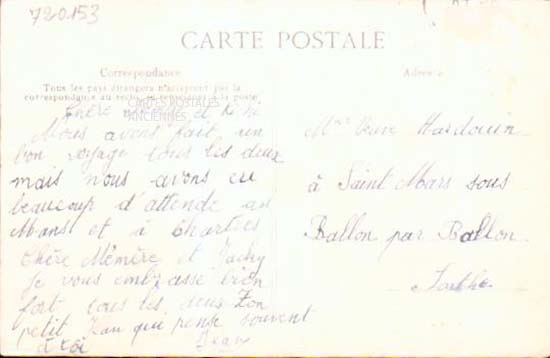 720153
CARTE POSTALE
Correspondance
Tous les pays étrangers n'acceptent pas la
correspondance au recto, se renseigner à la poste
CARTES POSTALES
ANCIENNES
Chère et
Nous avons fait un
bon voyage tous les deux
mais nous avons eu
beaucoup d'attende au
Mans et à Chartres
Chère Mémère et Jacky
Je vous embrasse bien
fort tous les deux Ton
petit Jean qui pense souvent
à toi
Jean
Adresse
Mme Veuve Hardouin
à Saint Mars sous
Ballon par Ballon
Sarthe